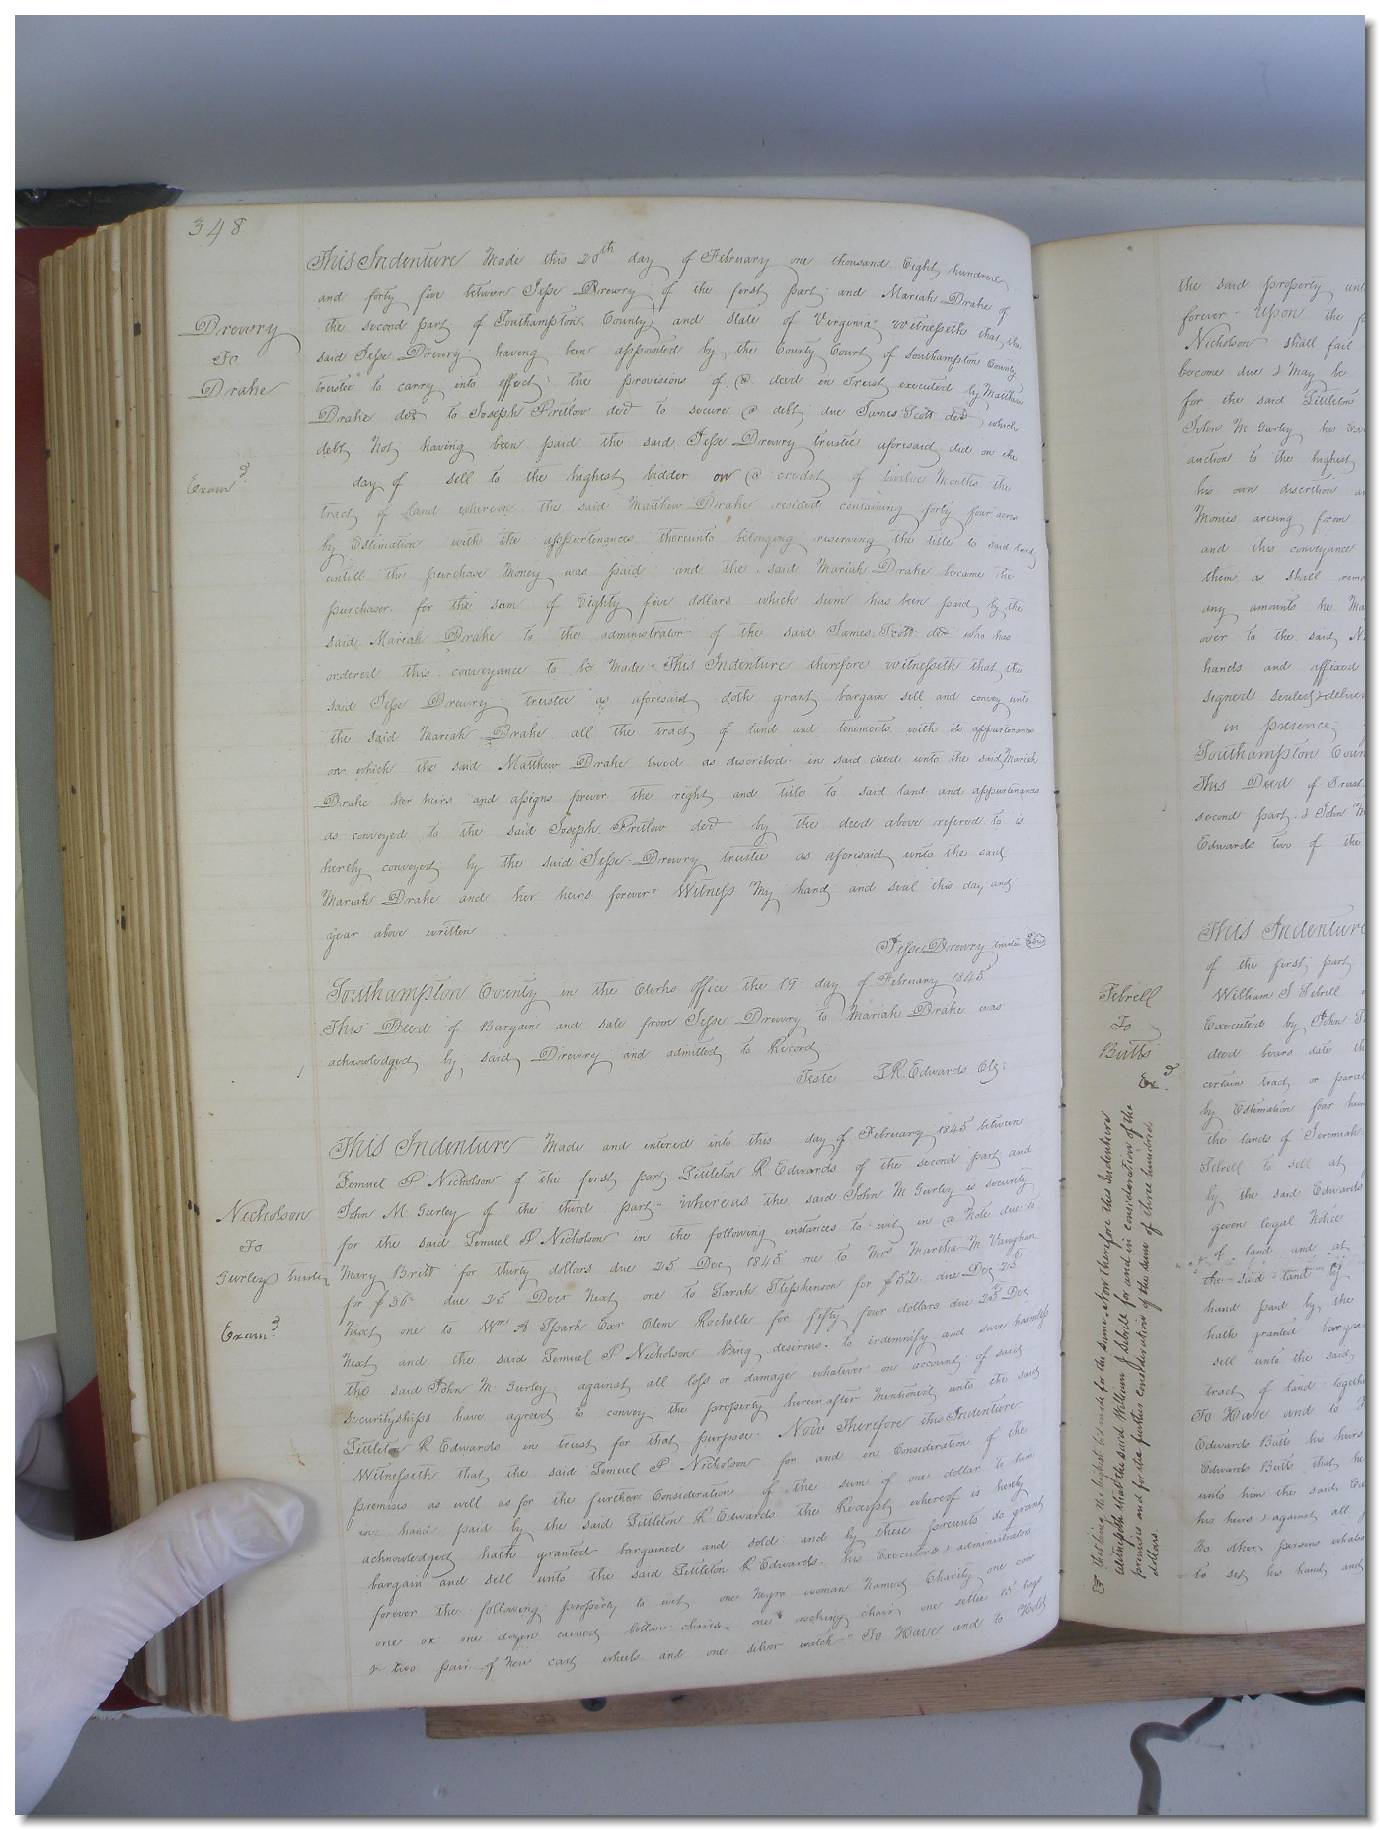 348
This Indenture Made this 20th day of February one thousand Eight hundred
and forty five between Jesse Drewry of the first part and Mariah Drake of
the second part of Southampton County and State of Virginia Witnesseth that the
said Jesse Drewry having been appointed by the County Court of Southampton County
trustee to carry into effect the provisions of a deed in Trust executed by Matthew
Drake decd to Joseph Pretlow decd to secure a debt due James Scott decd which
debt Not having been paid the said Jesse Drewry trustee aforesaid did on the
day of sell to the highest bidder on a credit of twelve Months the
tract of land whereon the said Matthew Drake resided containing forty four acres
by Estimation with the appertenances thereunto belonging reserving the title to said land
untill the purchase Money was paid and the said Mariah Drake became the
purchaser for the sum of Eighty five dollars which sum has been paid by the
said Mariah Drake to the administrator of the said James Scott decd who has
ordered this conveyance to be Made This Indenture therefore Witnesseth that the
said Jesse Drewry trustee as aforesaid doth grant bargain sell and convey unto
the said Mariah Drake all the tract of land and tenements with its appurtenances
on which the said Matthew Drake lived as described in said deed unto the said Mariah
Drake her heirs and assigns forever the right and title to said land and appurtenances
as conveyed to the said Joseph Pretlow decd by the deed above refered to is
hereby conveyed by the said Jesse Drewry trustee as aforesaid unto the said
Mariah Drake and her heirs forever Witness My hand and seal this day and
year above written
Jesse Drewry trustee Seal
Southampton County in the Clerks office the 19 day of February 1845
This Deed of Bargain and sale from Jesse Drewry to Mariah Drake was
acknowledged by said Drewry and admitted to Record
Teste L R Edwards Clk
This Indenture Made and entered into this day of February 1845 between
Lemuel P Nicholson of the first part Littleton R Edwards of the second part and
John M Gurley of the third part whereas the said John M Gurley is security
for the said Lemuel P Nicholson in the following instances to wit in a Note due to
Mary Britt for thirty dollars due 25 Dec 1845 one to Mrs Martha M Vaughan
for $36 due 25 Decr Next one to Sarah Stephenson for $52 due Dec 25
Next one to Wm A Spark Exr Clem Rochelle for fifty four dollars due 25 Dec
Next and the said Lemuel P Nicholson being desirous to indemnify and save harmless
the said John M Gurley against all loss or damage whatever on account of said
securityships have agreed to convey the property herein after Mentioned unto the said
Littleton R Edwards in trust for that purpose Now Therefore this Indenture
Witnesseth that the said Lemuel P Nicholson for and in Consideration of the
premises as well as for the further Consideration of the sum of one dollar to him
in hand paid by the said Littleton R Edwards the Receipt whereof is hereby
acknowledged hath granted bargained and sold and by these presents do grant
bargain and sell unto the said Littleton R Edwards his Executors & administrators
forever the following property to wit one Negro woman Named Charity one cow
one ox one dozen caned bottom chairs one rocking chair one settee 15
& two pair of New cart wheels and one silver watch To Have and to Hold
Drewry
To
Drake
Examd
Nicholson
To
Gurleys trustee
Examd
the said property
forever Upon the
Nicholson shall fail
become due & May be
for the said Littleton
John M Gurley
auction to the highest
his own discretion
Monies arising from
and this conveyance
them as shall
any amounts he
over to the said
hands and affixed
signed sealed & deliver
in presence
Southampton Coun
This Deed of Trust
second part & John M
Edwards two of the
Tebrell
To
Butts
Exd
it being the highest bid made for the same Now therefore this Indenture
Witnesseth that the said William J Tebrell for and in consideration of the
premises and for the further consideration of the sum of three hundred
dollars
This Indenture
of the first part
William J Tebrell
Executed by John T
deed bears date the
certain tract or parcel
by Estimation four hun
the lands of Jeremiah
Tebrell to sell at
by the said Edwards
given legal Notice
of land and at
the said land by
hand paid by the
hath granted bargain
sell unto the said
tract of land together
To Have and to
Edwards Butts his heirs
Edwards Butts that he
unto him the said
his heirs & against all
to other persons whats
to set his hand and